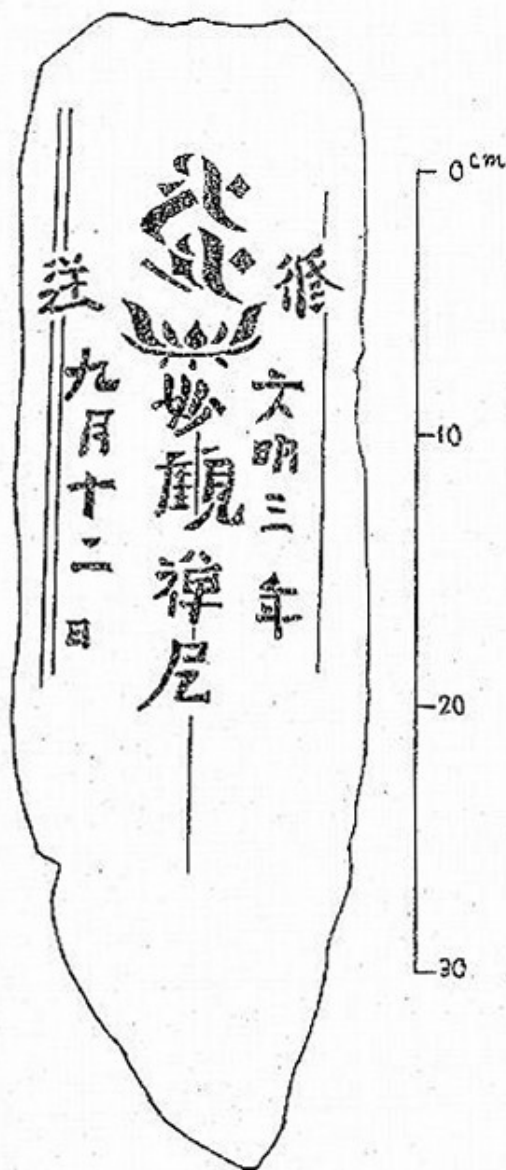 修
文明三年
妙観禅尼
逆
九月十二日
0cm
10
20
30